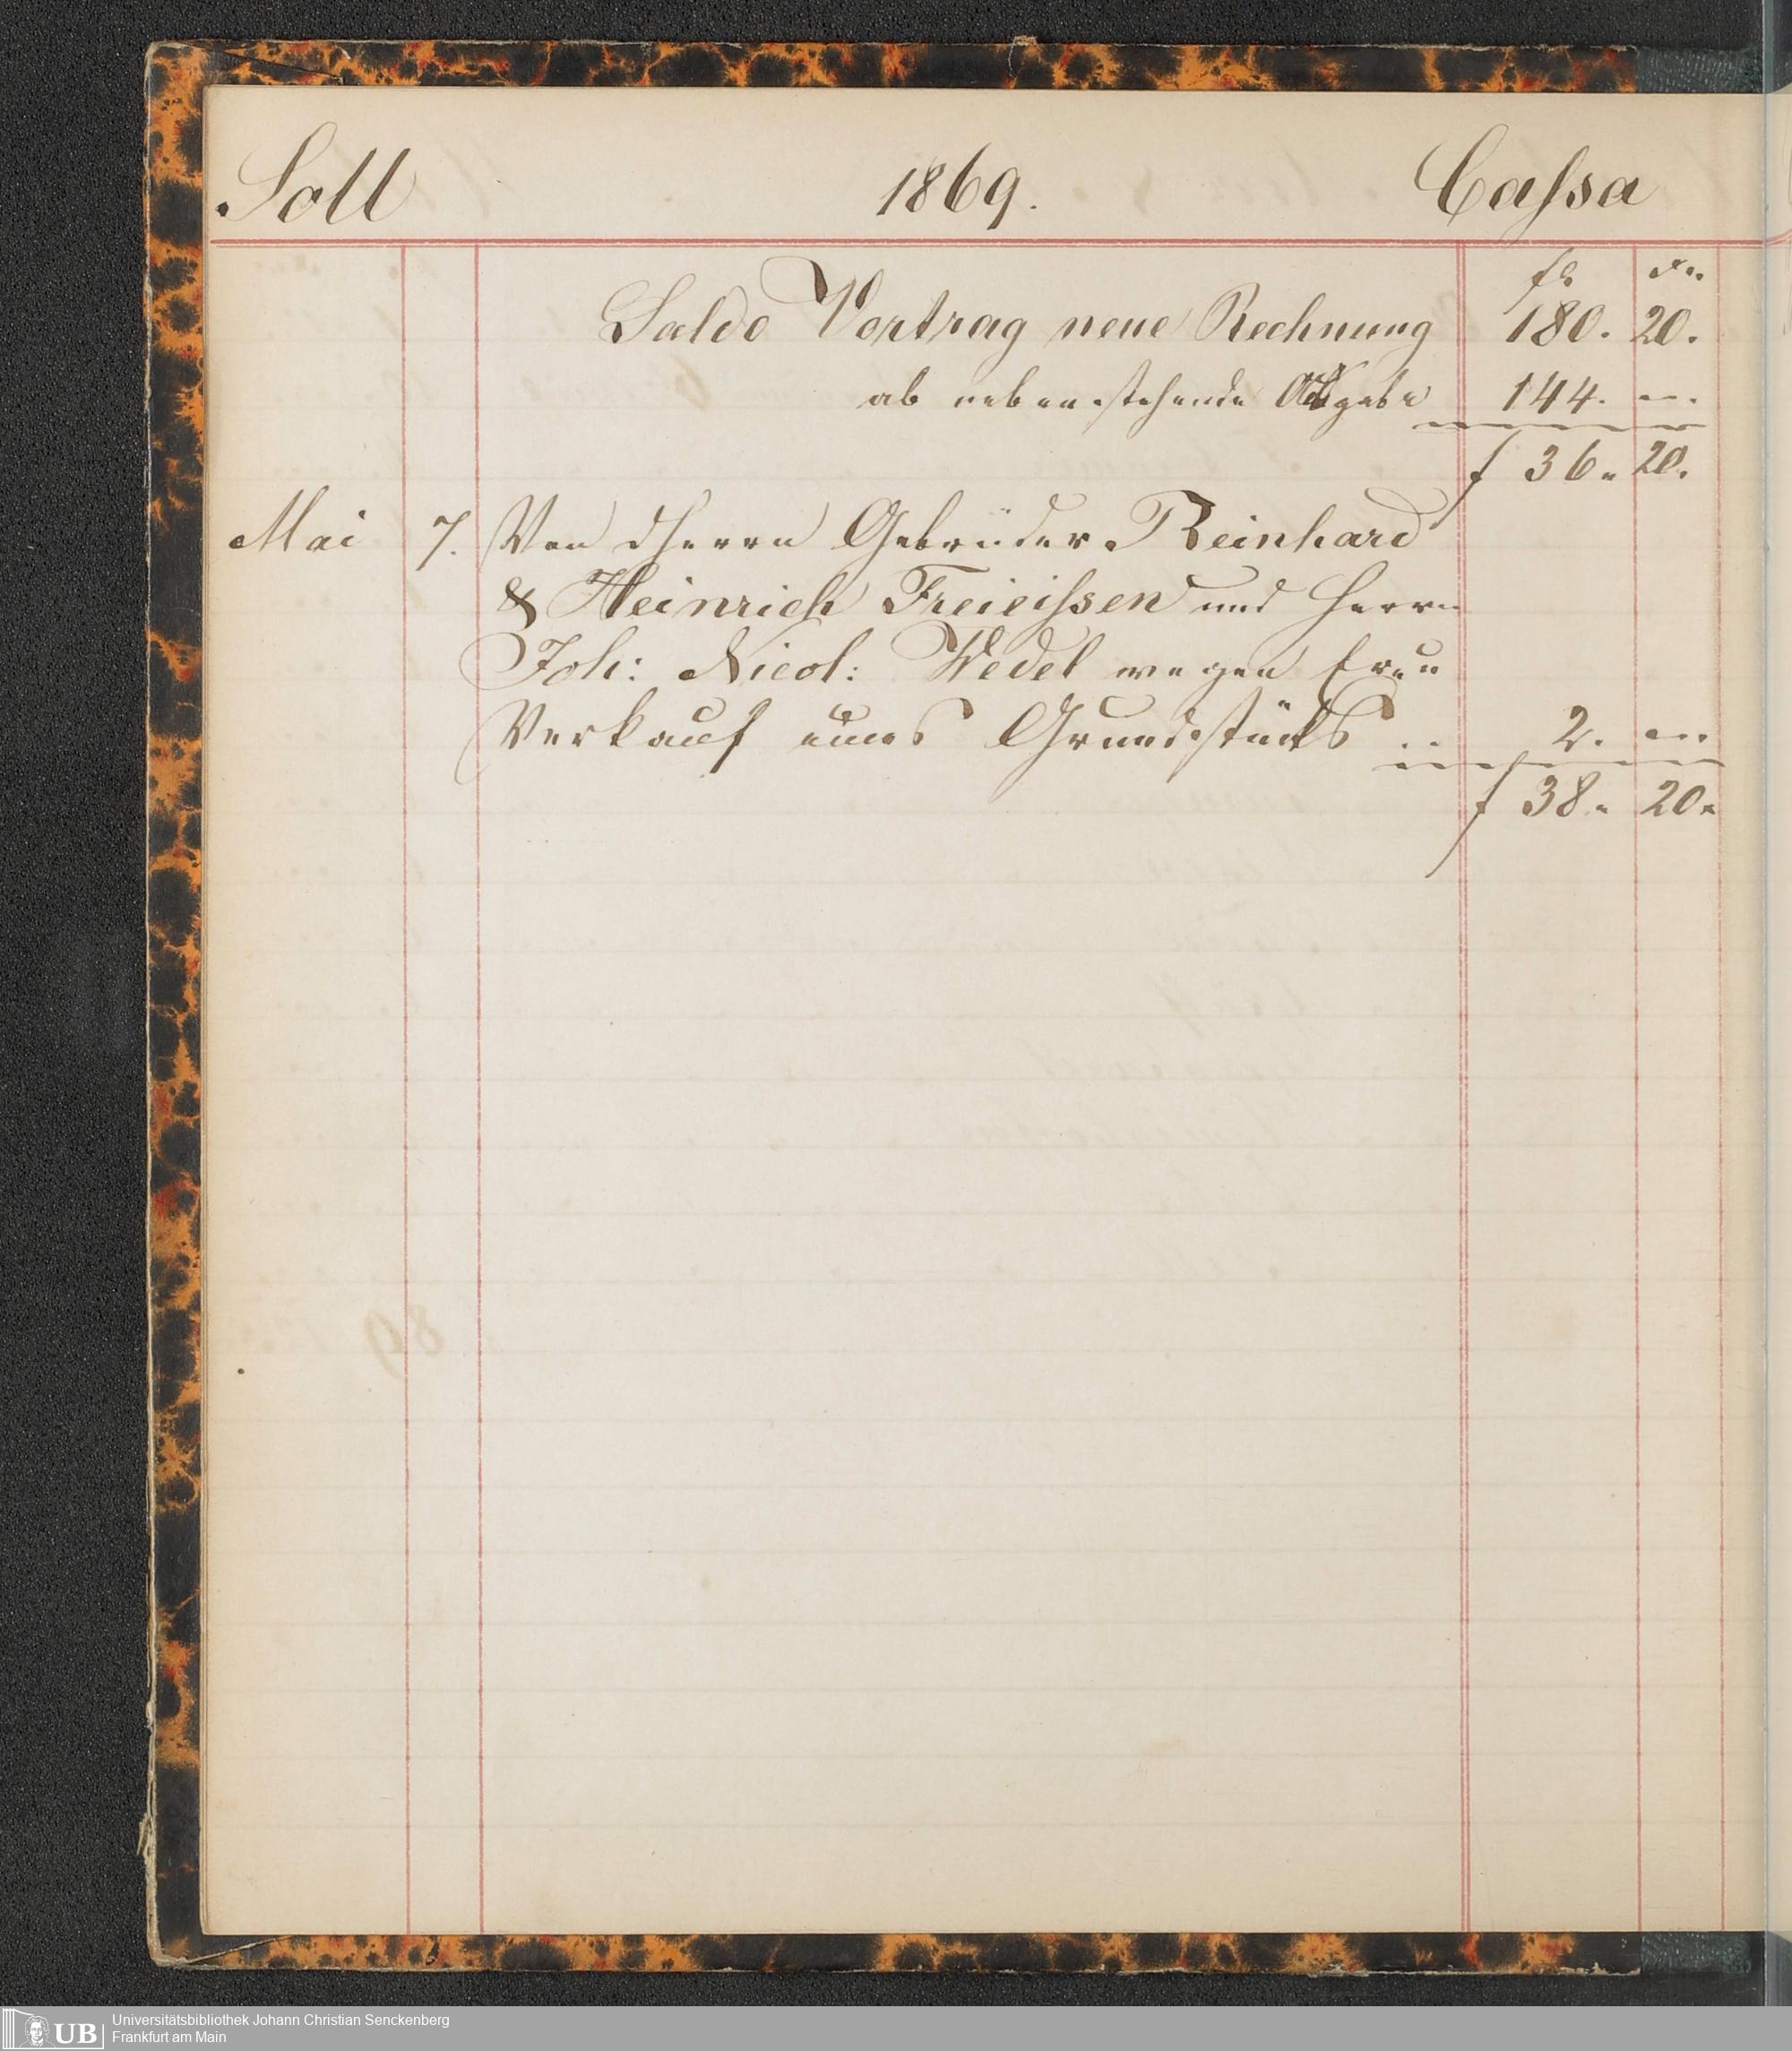 Soll 1869. Cassa
fl. xr.
Saldo Vortrag neue Rechnung 180. 20.
ab nebenstehende Abgabe 144. –.
f 36. 20.
Mai 7. Von d Herrn Gebrüder Reinhard
& Heinrich Freieissen und Herrn
Joh: Nicol: Wedel wegen
Verkauf eines Grundstücks .. 2. –.
f 38. 20.
Universitätsbibliothek Johann Christian Senckenberg
Frankfurt am Main
UB